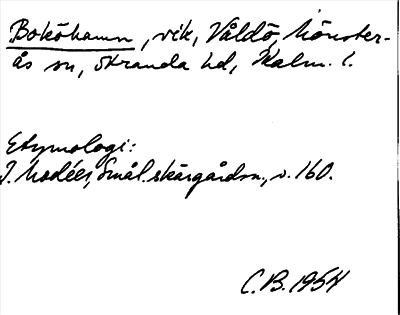 Boköhamn, vik, Våldö, Mönster-
ås sn, Stranda hd, Kalm. l.
Etymologi:
I. Modéer, Smål. skärgårdsn., s. 160.
C.B. 1954